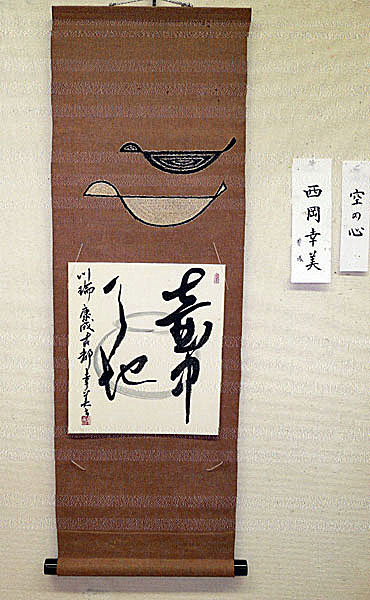 空の心
西岡幸美
壷中
地
川端康成 古都 幸美